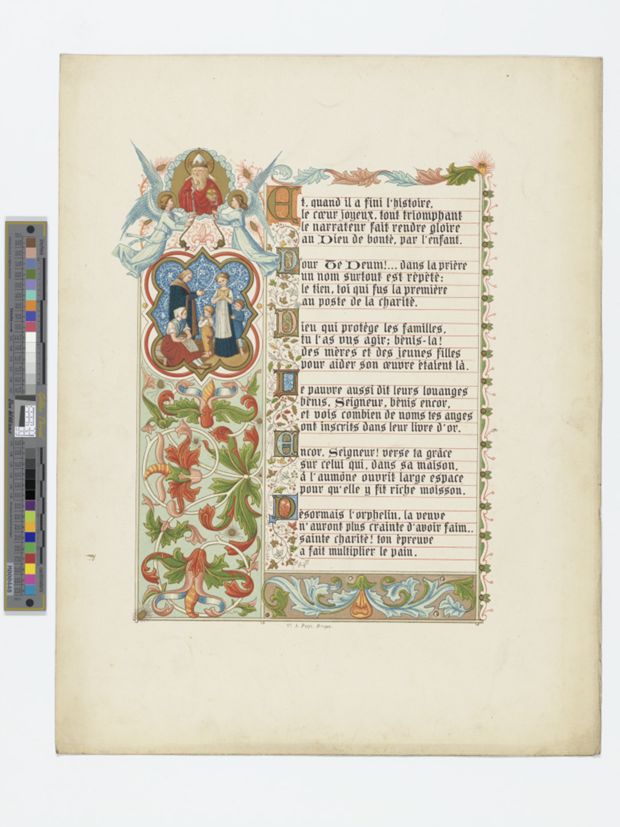 Et, quand il a fini l'histoire,
le cœur joyeux, tout triomphant
le narrateur fait rendre gloire
au Dieu de bonté, par l'enfant.
Pour Te Deum!... dans la prière
un nom surtout est répété;
le tien, toi qui fus la première
au poste de la charité.
Dieu qui protége les familles,
tu l'as vus agir; bénis-la!
des mères et des jeunes filles
pour aider son œuvre étaient là.
Le pauvre aussi dit leurs louanges
bénis, Seigneur, bénis encor,
et vois combien de noms tes anges
ont inscrits dans leur livre d'or.
Ancor, Seigneur! verse ta grâce
sur celui qui, dans sa maison,
à l'aumône ouvrit large espace
pour qu'elle y fit riche moisson.
Désormais l'orphelin, la veuve
n'auront plus crainte d'avoir faim..
sainte charité! ton épreuve
a fait multiplier le pain.